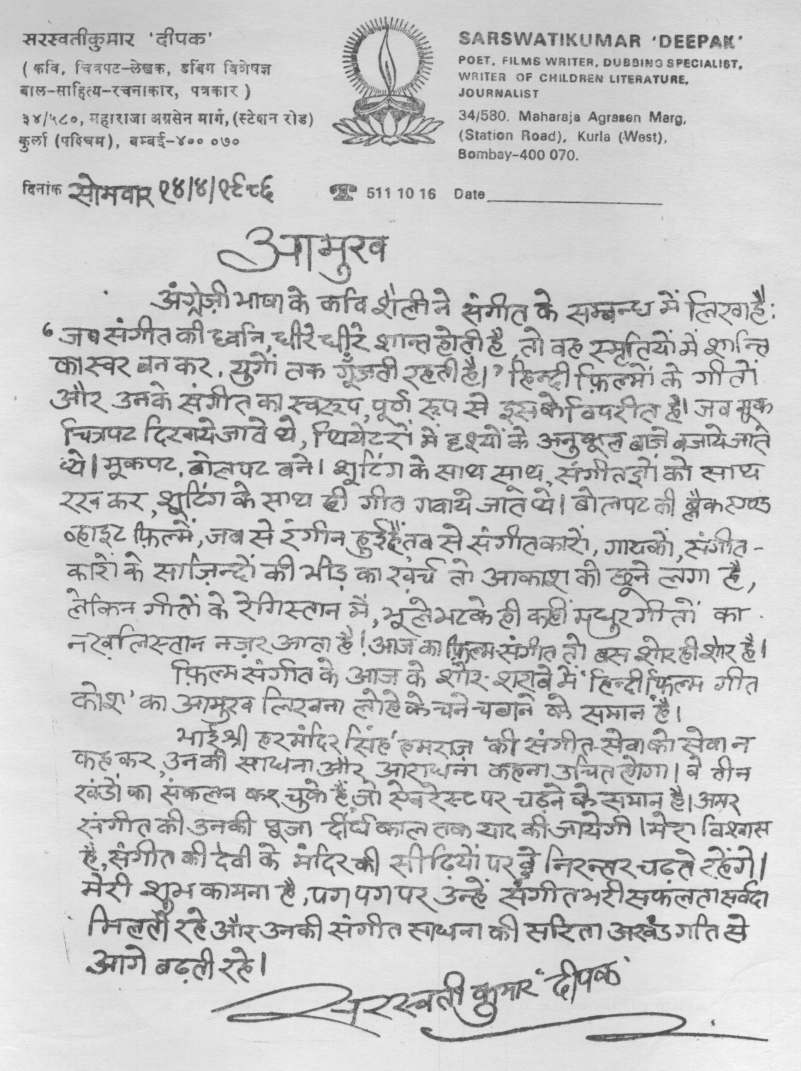 सरस्वतीकुमार 'दीपक'
( कवि, चित्रपट-लेखक, डबिंग विशेषज्ञ
बाल-साहित्य-रचनाकार, पत्रकार )
३४/५८०, महाराजा अग्रसेन मार्ग, (स्टेशन रोड)
कुर्ला (पश्चिम), बम्बई-४०० ०७०
SARSWATIKUMAR 'DEEPAK'
POET, FILMS WRITER, DUBBING SPECIALIST,
WRITER OF CHILDREN LITERATURE,
JOURNALIST
34/580. Maharaja Agrasen Marg,
(Station Road), Kurla (West),
Bombay-400 070.
दिनांक सोमवार १४/४/१९८६
☎ 511 10 16 Date
आमुख
अंग्रेज़ी भाषा के कवि शैली ने संगीत के सम्बन्ध में लिखा है:
'जब संगीत की ध्वनि, धीरे धीरे शान्त होती है, तो वह स्मृतियों में शान्ति
का स्वर बन कर, युगों तक गूँजती रहती है।' हिन्दी फ़िल्मों के गीतों
और उनके संगीत का स्वरूप, पूर्ण रूप से इसके विपरीत है। जब मूक
चित्रपट दिखाये जाते थे, थियेटरों में दृश्यों के अनुकूल बाजे बजाये जाते
थे। मूकपट, बोलपट बने। शूटिंग के साथ साथ, संगीतज्ञों को साथ
रख कर, शूटिंग के साथ ही गीत गवाये जाते थे। बोलपट की ब्लैक एण्ड
व्हाइट फ़िल्में, जब से रंगीन हुई हैं तब से संगीतकारों, गायकों, संगीत-
कारों के साज़िन्दों की भीड़ का खर्च तो आकाश को छूने लगा है,
लेकिन गीतों के रेगिस्तान में, भूले भटके ही कहीं मधुर गीतों का
नख़लिस्तान नज़र आता है! आज का फ़िल्म संगीत तो बस शोर ही शोर है।
फ़िल्म संगीत के आज के शोर-शराबे में 'हिन्दी फ़िल्म गीत
कोश' का आमुख लिखना लोहे के चने चबाने के समान है।
भाई श्री हरमंदिर सिंह 'हमराज़' की संगीत-सेवा को सेवा न
कह कर, उनकी साधना और आराधना कहना उचित होगा। वे तीन
खंडों का संकलन कर चुके हैं, जो एवरेस्ट पर चढ़ने के समान है। अमर
संगीत की उनकी पूजा दीर्घ काल तक याद की जायेगी। मेरा विश्वास
है, संगीत की देवी के मंदिर की सीढ़ियों पर वे निरन्तर चढ़ते रहेंगे।
मेरी शुभ कामना है, पग पग पर उन्हें संगीत भरी सफलता सर्वदा
मिलती रहे और उनकी संगीत साधना की सरिता अखंड गति से
आगे बढ़ती रहे।
सरस्वती कुमार 'दीपक'